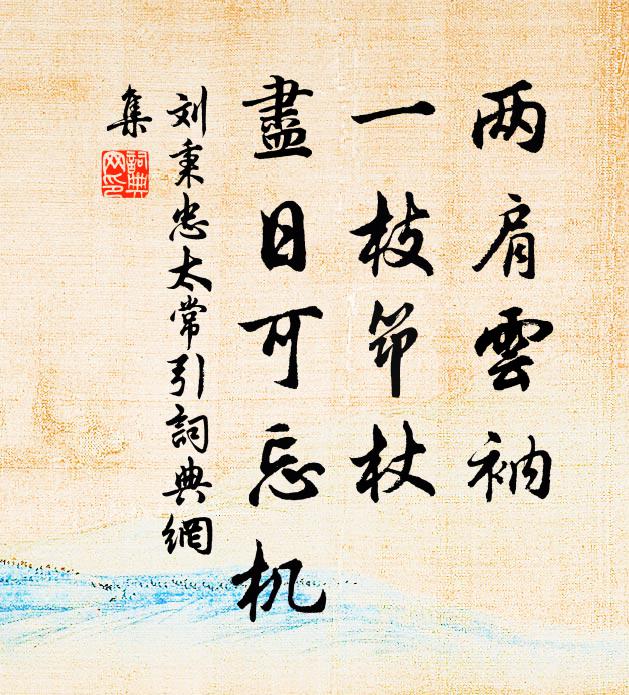 两肩雲衲
一枝筇杖
盡日可忘机
刘秉忠太常引詞典網
集
詞典
网印